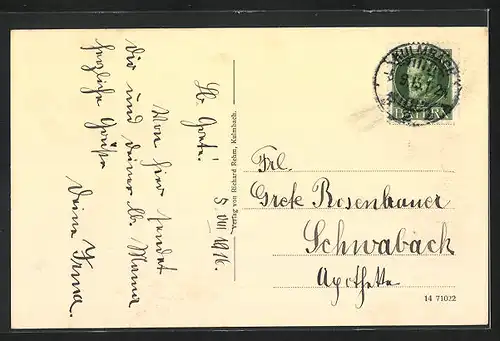 Lb. Grete!
Von hier sendet
Dir und deiner lb. Mama
herzliche Grüße
Deine Irma.
5. VIII 1916.
Verlag von Richard Rehm, Kulmbach.
KULMBACH
BAYERN
Frl.
Grete Rosenhauer
Schwabach
Apotheke
14 71022